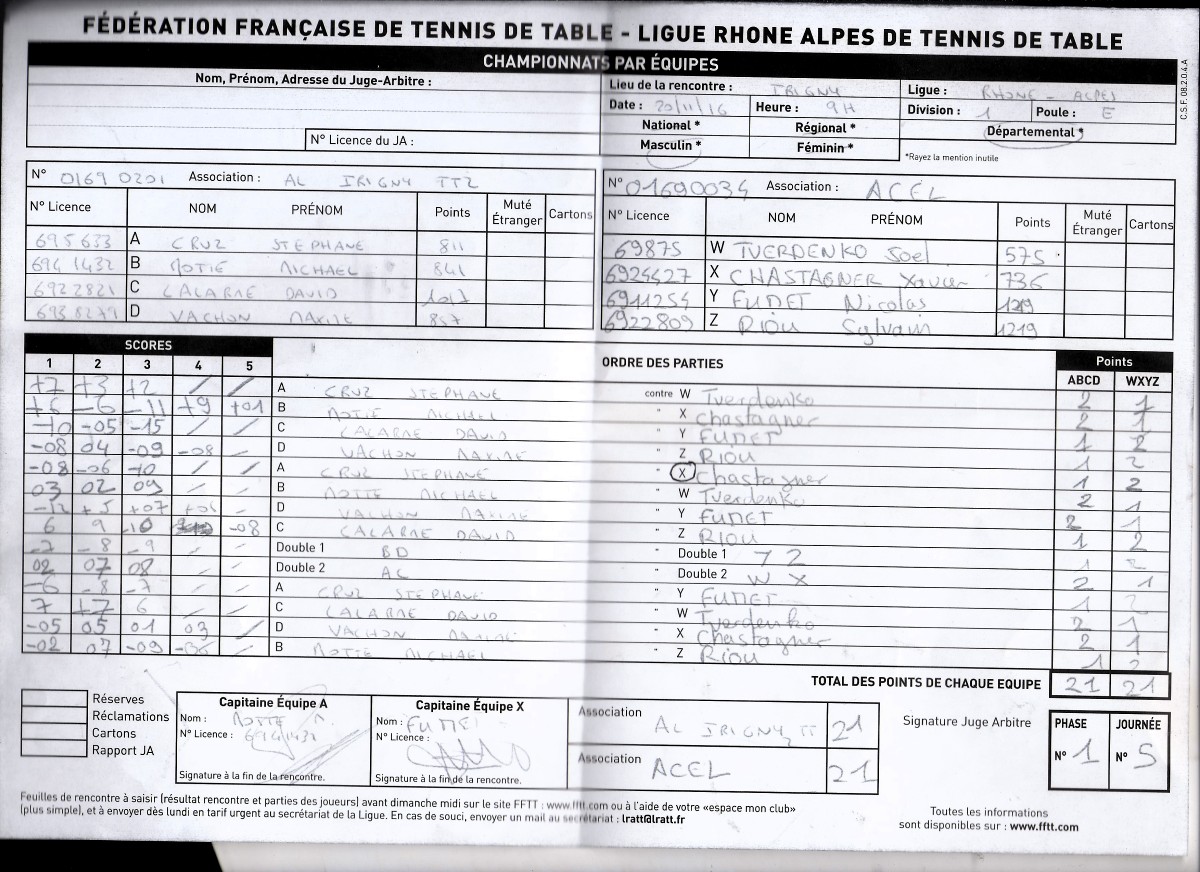 FÉDÉRATION FRANÇAISE DE TENNIS DE TABLE - LIGUE RHONE ALPES DE TENNIS DE TABLE
CHAMPIONNATS PAR ÉQUIPES
C.S.F. 08.2.0.4.A
Nom, Prénom, Adresse du Juge-Arbitre :
N° Licence du JA :
Lieu de la rencontre : IRIGNY Ligue : RHONE - ALPES
Date : 20/11/16 Heure : 9H Division : 1 Poule : E
National * Régional * Départemental *
Masculin * Féminin *
*Rayez la mention inutile
N° 0169 0201 Association : AL IRIGNY TT2
N° Licence NOM PRÉNOM Points Muté Étranger Cartons
695633 A CRUZ STEPHANE 811
694 1432 B MOTTE MICHAEL 841
6922821 C LALARME DAVID
6938279 D VACHON MAXIME 857
N° 01690034 Association : ACEL
N° Licence NOM PRÉNOM Points Muté Étranger Cartons
69875 W TVERDENKO Soel 575
6924427 X CHASTAGNER Xavier 736
6911254 Y FUNET Nicolas 1219
6922809 Z RIOU Sylvain 1219
SCORES ORDRE DES PARTIES Points
1 2 3 4 5 ABCD WXYZ
+7 +3 +2 / / A CRUZ STEPHANE contre W Tverdenko 2 1
+6 -6 -11 +9 +01 B MOTTE MICHAEL " X Chastagner 2 1
-10 -05 -15 / / C LALARME DAVID " Y FUNET 1 2
-08 04 -09 -08 - D VACHON MAXIME " Z RIOU 1 2
-08 -06 -10 / / A CRUZ STEPHANE " X Chastagner 1 2
03 02 09 / / B MOTTE MICHAEL " W Tverdenko 2 1
-12 +5 +07 - D VACHON MAXIME " Y FUNET 2 1
6 9 -10 -08 C LALARME DAVID " Z RIOU 1 2
-7 -8 -9 - - Double 1 BD " Double 1 Y Z 1 2
02 07 08 / / Double 2 AC " Double 2 W X 2 1
-6 -8 -7 - - A CRUZ STEPHANE " Y FUNET 1 2
7 +7 6 / / C LALARME DAVID " W Tverdenko 2 1
-05 05 01 03 / D VACHON MAXIME " X Chastagner 2 1
-02 07 -09 -06 - B MOTTE MICHAEL " Z RIOU 1 2
TOTAL DES POINTS DE CHAQUE EQUIPE 21 21
Réserves
Réclamations
Cartons
Rapport JA
Capitaine Équipe A
Nom : MOTTE M.
N° Licence : 6941432
Signature à la fin de la rencontre.
Capitaine Équipe X
Nom : FUNET
N° Licence :
Signature à la fin de la rencontre.
Association AL IRIGNY TT 21
Association ACEL 21
Signature Juge Arbitre
PHASE N° 1
JOURNÉE N° 5
Feuilles de rencontre à saisir (résultat rencontre et parties des joueurs) avant dimanche midi sur le site FFTT : www.fftt.com ou à l'aide de votre «espace mon club»
(plus simple), et à envoyer dès lundi en tarif urgent au secrétariat de la Ligue. En cas de souci, envoyer un mail au secrétariat : lratt@lratt.fr
Toutes les informations
sont disponibles sur : www.fftt.com